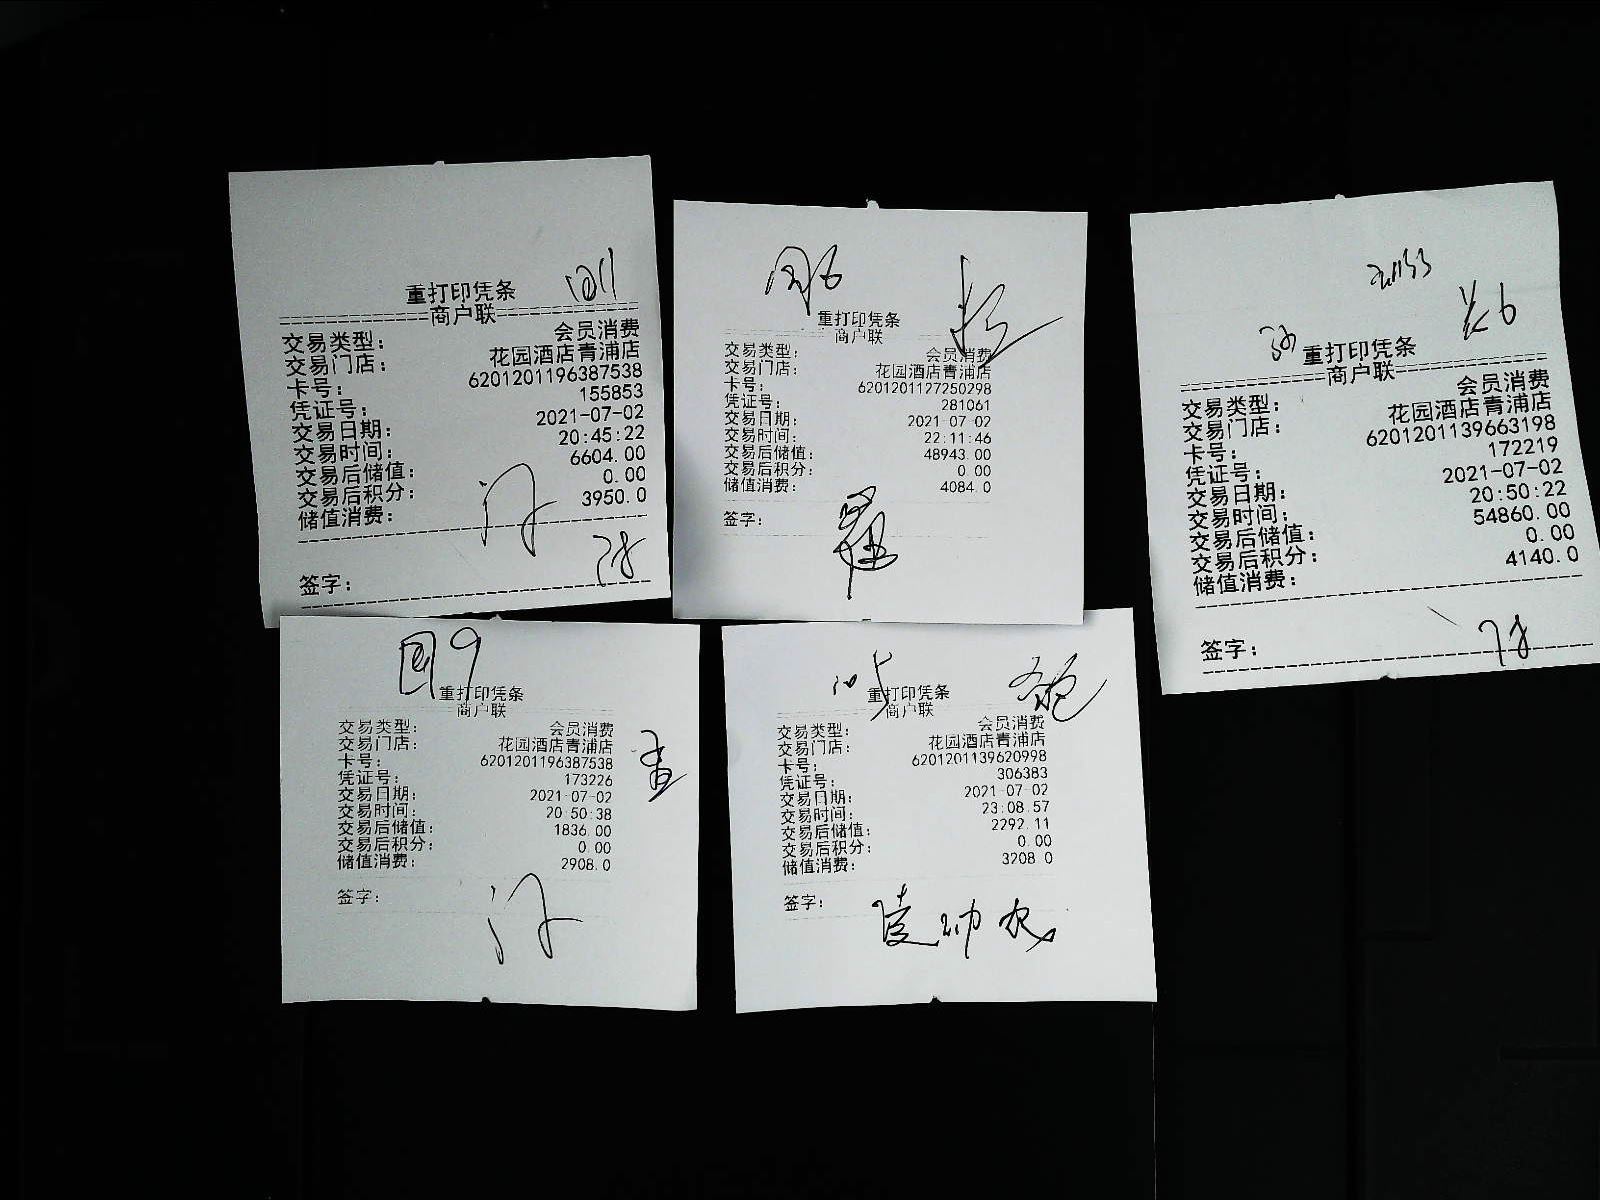 重打印凭条
商户联
交易类型： 会员消费
交易门店： 花园酒店青浦店
卡号： 6201201196387538
凭证号： 155853
交易日期： 2021-07-02
交易时间： 20:45:22
交易后储值： 6604.00
交易后积分： 0.00
储值消费： 3950.0
签字：
重打印凭条
商户联
交易类型： 会员消费
交易门店： 花园酒店青浦店
卡号： 6201201127250298
凭证号： 281061
交易日期： 2021-07-02
交易时间： 22:11:46
交易后储值： 48943.00
交易后积分： 0.00
储值消费： 4084.0
签字：
重打印凭条
商户联
交易类型： 会员消费
交易门店： 花园酒店青浦店
卡号： 6201201139663198
凭证号： 172219
交易日期： 2021-07-02
交易时间： 20:50:22
交易后储值： 54860.00
交易后积分： 0.00
储值消费： 4140.0
签字：
重打印凭条
商户联
交易类型： 会员消费
交易门店： 花园酒店青浦店
卡号： 6201201196387538
凭证号： 173226
交易日期： 2021-07-02
交易时间： 20:50:38
交易后储值： 1836.00
交易后积分： 0.00
储值消费： 2908.0
签字：
重打印凭条
商户联
交易类型： 会员消费
交易门店： 花园酒店青浦店
卡号： 6201201139620998
凭证号： 306383
交易日期： 2021-07-02
交易时间： 23:08:57
交易后储值： 2292.11
交易后积分： 0.00
储值消费： 3208.0
签字：